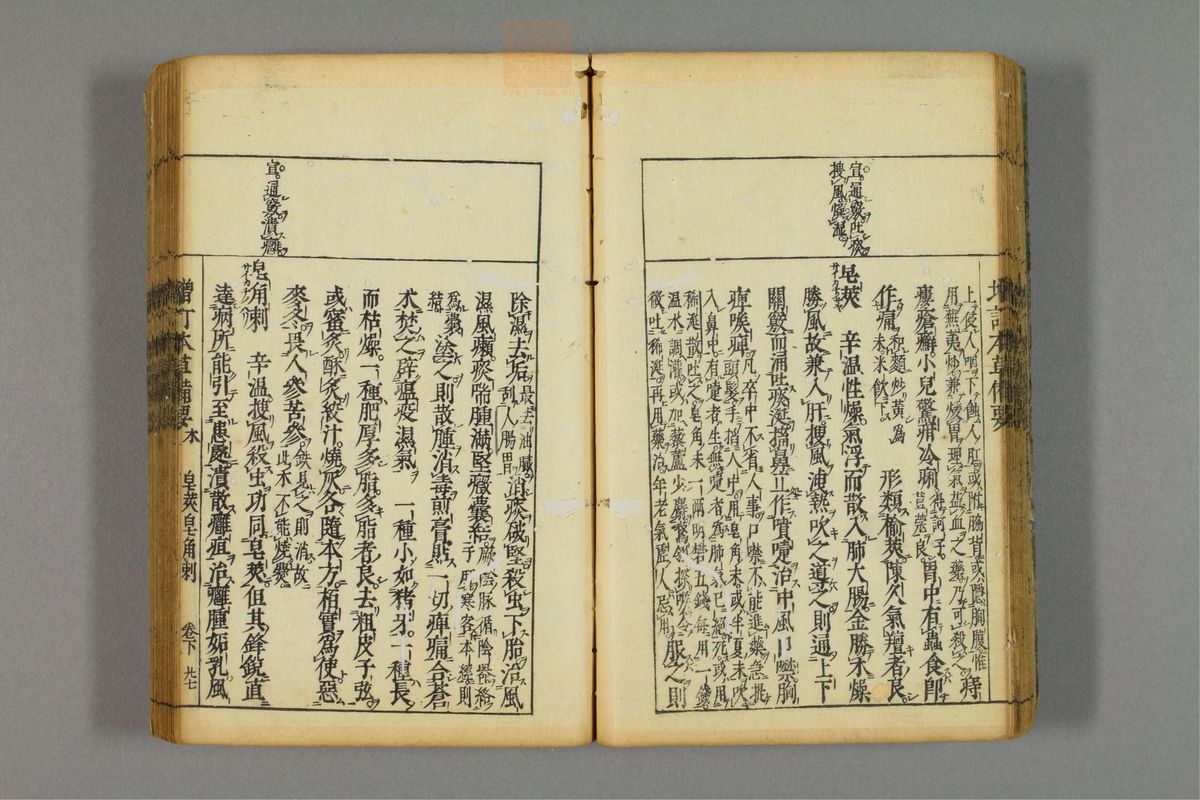 宣。通竅吐痰
搜風燥濕
上使人咽下蝕人肛或附脇背或隱胸腹惟
用蕪荑炒兼煖胃理氣益血之藥乃可殺之痔
瘻瘡癬小兒驚疳冷痢得訶子荳蔻良胃中有蟲食即
作痛和麵炒黃為末米飲下形類榆莢陳久氣羶者良
皂莢 辛温性燥氣浮而散入肺大腸金勝木燥
勝風故兼入肝搜風洩熱吹之導之則通上下
關竅而涌吐痰涎搐鼻立作噴嚏治中風口噤胸
痺喉痺凡卒中不省人事口噤不能進藥急提
頭髮手指人中用皂角末或半夏末吹
入鼻中有嚏者生無嚏者為肺氣已絕死或用
稀涎散吐之皂角末一兩明礬五錢每用一錢
温水調灌或加藜蘆少麝鵞翎探喉令
微吐稀涎再用藥治年老氣虛人忌用服之則
增訂本草備要
宣。通竅潰癰
除濕去垢最去油臟刮人腸胃消痰破堅殺虫下胎治風
濕風癩痰喘腫滿堅癥囊結厥陰脉循陰器絡
睪子
為囊
結
塗之則散腫消毒煎膏貼一切痺痛合蒼
术焚之辟瘟疫濕氣 一種小如猪牙。一種長
而枯燥。一種肥厚多脂。多脂者良去粗皮子弦
或蜜炙酥炙絞汁。燒灰各隨本方。柏實為使惡
麥冬畏人參苦參鉄見之則消故此木不能燒爨
皂角刺 辛温搜風殺虫功同皂莢但其鋒銳直
達病所能引至患處潰散癰疽治癰腫妬乳風
增訂本草備要 木 皂莢皂角刺 卷下 九七